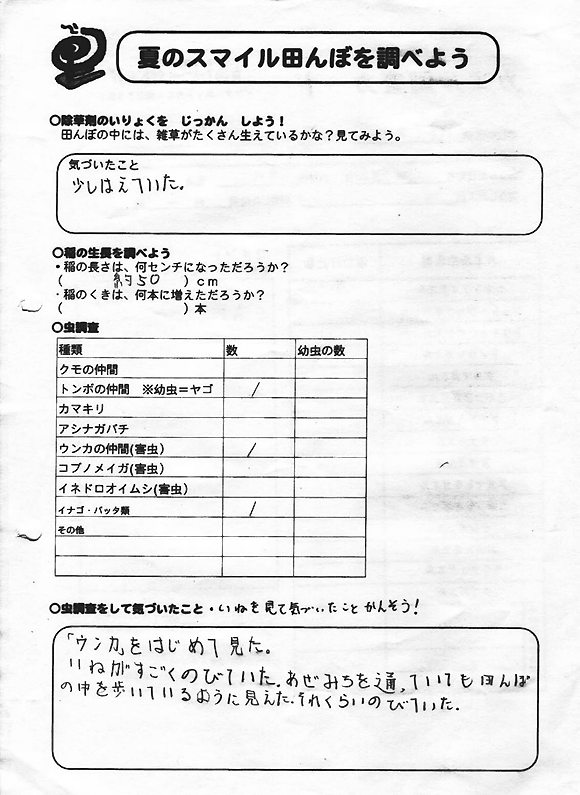 夏のスマイル田んぼを調べよう
○除草剤のいりょくを じっかん しよう!
田んぼの中には、雑草がたくさん生えているかな?見てみよう。
気づいたこと
少しはえていた。
○稲の生長を調べよう
・稲の長さは、何センチになっただろうか?
( 約50 )cm
・稲のくきは、何本に増えただろうか?
( )本
○虫調査
種類 数 幼虫の数
クモの仲間
トンボの仲間 ※幼虫=ヤゴ /
カマキリ
アシナガバチ
ウンカの仲間(害虫) /
コブノメイガ(害虫)
イネドロオイムシ(害虫)
イナゴ・バッタ類 /
その他
○虫調査をして気づいたこと・いねを見て気づいたこと かんそう!
「ウンカ」をはじめて見た。
いねがすごくのびていた。あぜみちを通っていても田んぼ
の中を歩いているように見えた。それくらいのびていた。